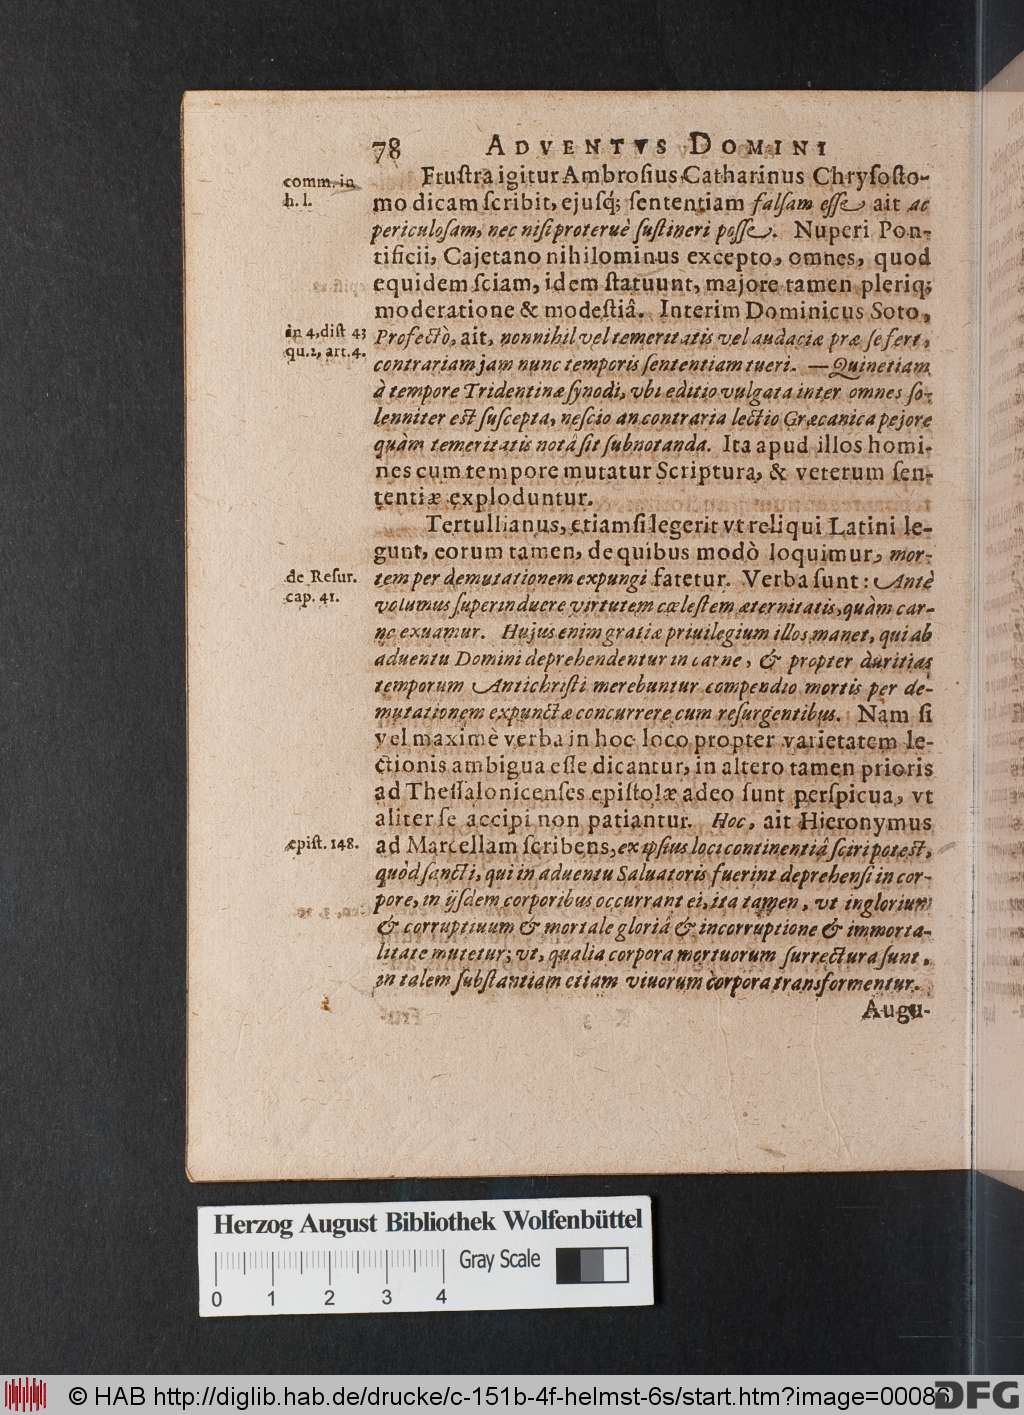 78 ADVENTVS DOMINI
comm. in
h. l.
Frustra igitur Ambrosius Catharinus Chrysosto-
mo dicam scribit, ejusq; sententiam falsam esse ait ac
periculosam, nec nisi proteruè sustineri posse. Nuperi Pon-
tificii, Cajetano nihilominus excepto, omnes, quod
equidem sciam, idem statuunt, majore tamen pleriq;
moderatione & modestiâ. Interim Dominicus Soto,
in 4, dist 43
qu. 2, art. 4.
Profectò, ait, nonnihil vel temeritatis vel audaciæ præ se fert,
contrariam jam nunc temporis sententiam tueri. — Quinetiam
à tempore Tridentinæ synodi, vbi editio vulgata inter omnes so-
lenniter est suscepta, nescio an contraria lectio Græcanica pejore
quàm temeritatis notâ sit subnotanda. Ita apud illos homi-
nes cum tempore mutatur Scriptura, & veterum sen-
tentiæ exploduntur.
Tertullianus, etiamsi legerit vt reliqui Latini le-
gunt, eorum tamen, de quibus modò loquimur, mor-
de Resur.
cap. 41.
tem per demutationem expungi fatetur. Verba sunt: Antè
volumus superinduere virtutem cœlestem æternitatis, quàm car-
ne exuamur. Hujus enim gratiæ priuilegium illos manet, qui ab
aduentu Domini deprehendentur in carne, & propter duritias
temporum Antichristi merebuntur compendio mortis per de-
mutationem expunctæ concurrere cum resurgentibus. Nam si
vel maximè verba in hoc loco propter varietatem le-
ctionis ambigua esse dicantur, in altero tamen prioris
ad Thessalonicenses epistolæ adeo sunt perspicua, vt
aliter se accipi non patiantur. Hoc, ait Hieronymus
epist. 148.
ad Marcellam scribens, ex ipsius loci continentiâ sciri potest,
quòd sancti, qui in aduentu Saluatoris fuerint deprehensi in cor-
pore, in ijsdem corporibus occurrant ei, ita tamen, vt inglorium
& corruptiuum & mortale gloriâ & incorruptione & immorta-
litate mutetur; vt, qualia corpora mortuorum surrectura sunt,
in talem substantiam etiam viuorum corpora transformentur.
Augu-
Herzog August Bibliothek Wolfenbüttel
Gray Scale
0 1 2 3 4
© HAB http://diglib.hab.de/drucke/c-151b-4f-helmst-6s/start.htm?image=00086
DFG